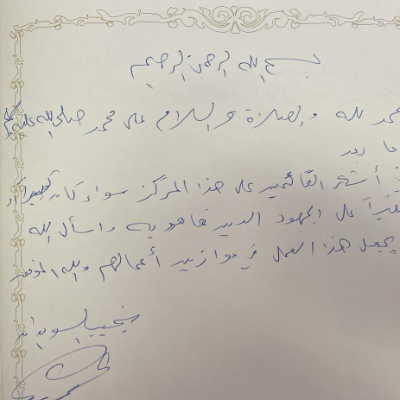 بسم الله الرحمن الرحيم
حمد لله والصلاة والسلام على محمد صلى الله عليه
ما بعد
أشكر القائمين على هذا المركز سواء كان كبيراً
على الجهود الذين قاموا به واسأل الله
يجعل هذا العمل في موازين أعمالهم والله الموفق